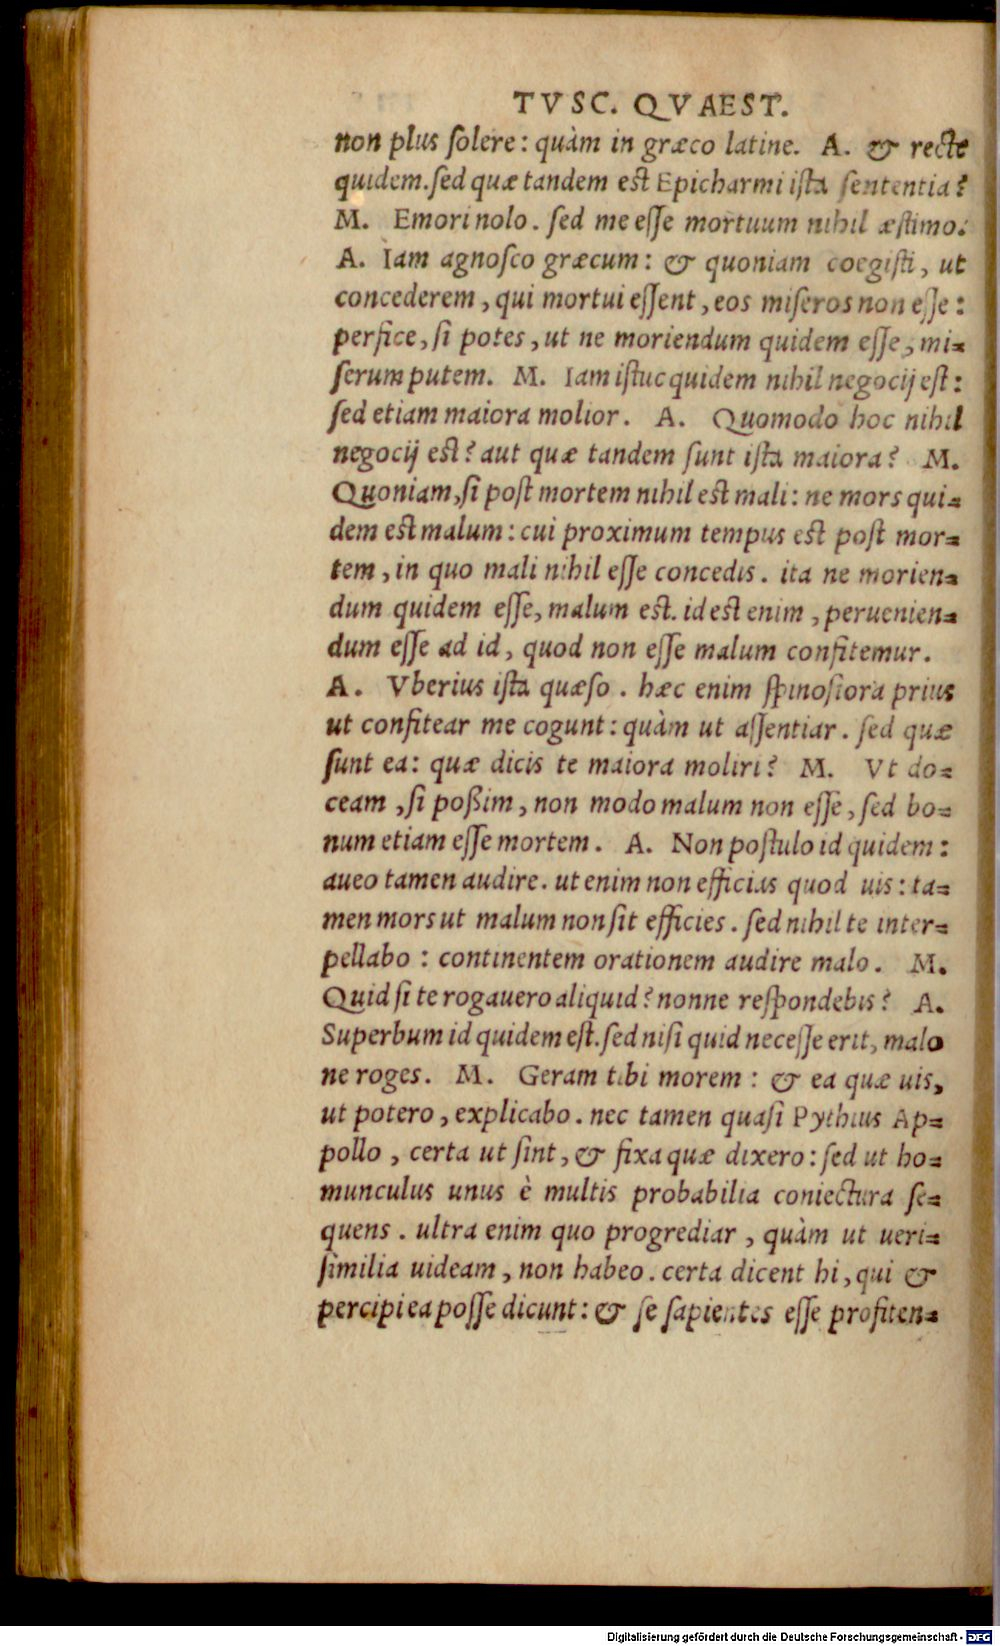 TVSC. QVAEST.
non plus ſolere: quàm in græco latine. A. & recte
quidem. ſed quæ tandem est Epicharmi iſta ſententia?
M. Emori nolo. ſed me eſſe mortuum nihil æſtimo.
A. Iam agnoſco græcum: & quoniam coegiſti, ut
concederem, qui mortui eſſent, eos miſeros non eſſe:
perfice, ſi potes, ut ne moriendum quidem eſſe, mi=
ſerum putem. M. Iam iſtuc quidem nihil negocij eſt:
ſed etiam maiora molior. A. Quomodo hoc nihil
negocij est? aut quæ tandem ſunt iſta maiora? M.
Quoniam, ſi poſt mortem nihil est mali: ne mors qui=
dem est malum: cui proximum tempus est poſt mor=
tem, in quo mali nihil eſſe concedis. ita ne morien=
dum quidem eſſe, malum est. id est enim, peruenien=
dum eſſe ad id, quod non eſſe malum confitemur.
A. Vberius iſta quæſo. hæc enim ſpinoſiora prius
ut confitear me cogunt: quàm ut aſſentiar. ſed quæ
ſunt ea: quæ dicis te maiora moliri? M. Vt do=
ceam, ſi poßim, non modo malum non eſſe, ſed bo=
num etiam eſſe mortem. A. Non poſtulo id quidem:
aueo tamen audire. ut enim non efficias quod uis: ta=
men mors ut malum non ſit efficies. ſed nihil te inter=
pellabo: continentem orationem audire malo. M.
Quid ſi te rogauero aliquid? nonne reſpondebis? A.
Superbum id quidem eſt. ſed niſi quid neceſſe erit, malo
ne roges. M. Geram tibi morem: & ea quæ uis,
ut potero, explicabo. nec tamen quaſi Pythius Ap=
pollo, certa ut ſint, & fixa quæ dixero: ſed ut ho=
munculus unus è multis probabilia coniectura ſe=
quens. ultra enim quo progrediar, quàm ut ueri=
ſimilia uideam, non habeo. certa dicent hi, qui &
percipi ea poſſe dicunt: & ſe ſapientes eſſe profiten=
Digitalisierung gefördert durch die Deutsche Forschungsgemeinschaft - DFG